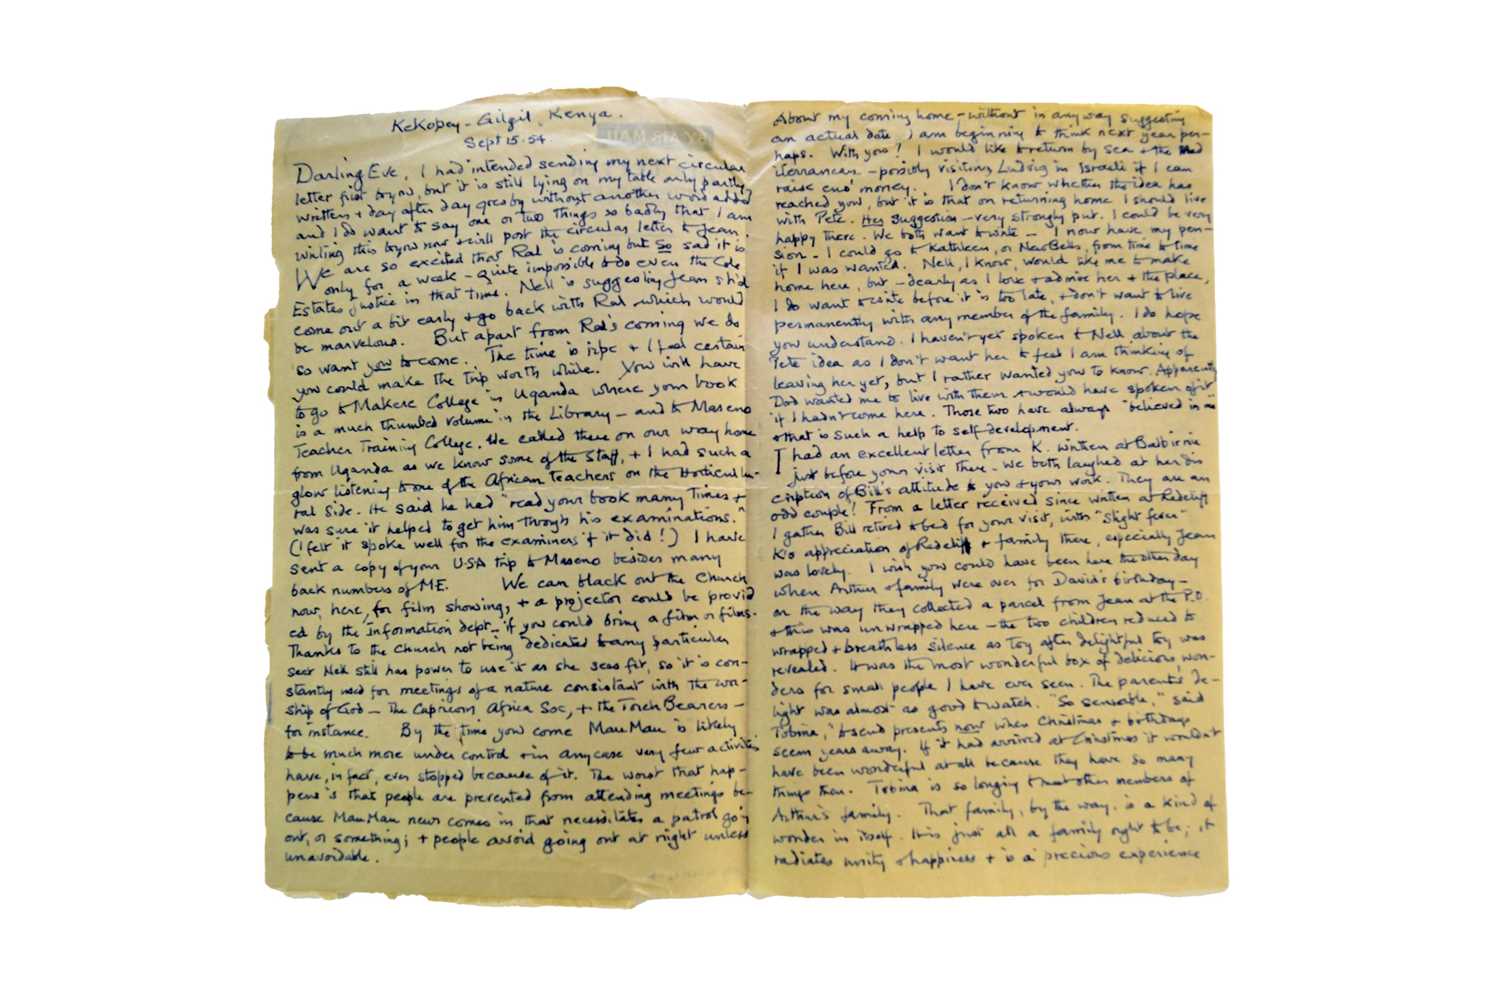 KeKopey - Gilgil, Kenya.
Sept 15. 54.
Darling Eve, I had intended sending my next circular
letter first to you, but it is still lying on my table only partly
written + day after day goes by without another word added
and I do want to say one or two things so badly that I am
writing this to you now + will post the circular letter to Jean.
We are so excited that Ral is coming but so sad it is
only for a week - quite impossible to do even the Cole
Estates justice in that time. Nell is suggesting Jean sh'd
come out a bit early + go back with Ral which would
be marvelous. But apart from Ral's coming we do
so want you to come. The time is ripe + I feel certain
you could make the trip worth while. You will have
to go to Makere College in Uganda where your book
is a much thumbed volume in the Library - and to Maseno
Teacher Training College. We called there on our way home
from Uganda as we know some of the Staff, + I had such a
glow listening to one of the African Teachers on the Horticultu-
ral Side. He said he had "read your book many times +
was sure it helped to get him through his examinations."
(I felt it spoke well for the examiners if it did!) I have
sent a copy of your USA trip to Maseno besides many
back numbers of ME. We can black out the Church
now, here, for film showing, + a projector could be provid
ed by the Information dept - if you could bring a film or films.
Thanks to the Church not being dedicated to any particular
sect Nell still has power to use it as she sees fit, so it is con-
stantly used for meetings of a nature consistant with the wor-
ship of God - The Capricorn Africa Soc, + the Torch Bearers -
for instance. By the time you come Mau Mau is likely
to be much more under control + in any case very few activities
have, in fact, ever stopped because of it. The worst that hap-
pens is that people are prevented from attending meetings be-
cause Mau Mau news comes in that necessitates a patrol going
out, or something; + people avoid going out at night unless
unavoidable.
About my coming home - without in any way suggesting
an actual date, I am beginning to think next year per-
haps. With you! I would like to return by sea + the Med
iterranean - possibly visiting Ludwig in Israeli if I can
raise eno' money. I don't know whether the idea has
reached you, but it is that on returning home I should live
with Pete. Her suggestion - very strongly put. I could be very
happy there. We both want to write - I now have my pen-
sion - I could go to Kathleen, or NewBells, from time to time
if I was wanted. Nell, I know, would like me to make
home here, but - dearly as I love + admire her + the place,
I do want to write before it is too late, + don't want to live
permanently with any member of the family. I do hope
you understand. I haven't yet spoken to Nell about the
Pete idea as I don't want her to feel I am thinking of
leaving her yet, but I rather wanted you to know. Apparently
Dod wanted me to live with them + would have spoken of it
if I hadn't come here. Those two have always "believed in me"
+ that is such a help to self-development.
I had an excellent letter from K. written at Balbirnie
just before your visit there. We both laughed at her dis
cription of Bill's attitude to you + your work. They are an
odd couple! From a letter received since written at Redcliff
I gather Bill retired to bed for your visit, with "slight fever"
K's appreciation of Redcliff + family there, especially Jean
was lovely. I wish you could have been here the other day
when Arthur + family were over for David's birthday -
on the way they collected a parcel from Jean at the P.O.
+ this was unwrapped here - the two children reduced to
wrapped + breathless silence as toy after delightful toy was
revealed. It was the most wonderful box of delicious won-
ders for small people I have ever seen. The parents' de-
light was almost as good to watch. "So sensable," said
Tobina, "to send presents now when Christmas + birthdays
seem years away. If it had arrived at Christmas it wouldn't
have been wonderful at all because they have so many
things then. Tobina is so longing to meet other members of
Arthur's family. That family, by the way, is a kind of
wonder in itself. It is just all a family ought to be; it
radiates unity + happiness + is a precious experience